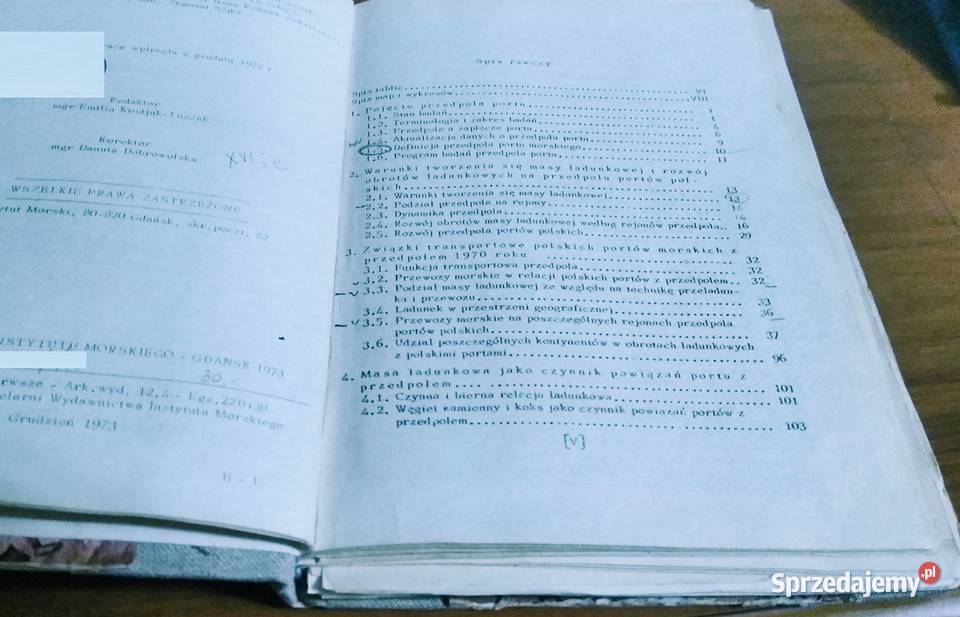 mgr. Zygmunt Sójka
wpłynęła w grudniu 1972 r.
Redaktor
mgr Emilia Kostjuk-Łuczak
Korektor
mgr Danuta Dobrowolska
WSZELKIE PRAWA ZASTRZEŻONE
Instytut Morski, 80-820 Gdańsk, skr. poczt. 82
INSTYTUTU MORSKIEGO - GDAŃSK 1973
30.-
Ark. wyd. 12,4 - Egz. 220+30
Wydawnictwa Instytutu Morskiego
Grudzień 1973
Spis rzeczy
Spis tablic VI
Spis map i wykresów VIII
1. Pojęcie przedpola portu 1
1.1. Stan badań 1
1.2. Terminologia i zakres badań 4
1.3. Przedpole a zaplecze portu 6
1.4. Aktualizacja danych o przedpolu portu 9
1.5. Definicja przedpola portu morskiego 10
1.6. Program badań przedpola portu 11
2. Warunki tworzenia się masy ładunkowej i rozwój
obrotów ładunkowych na przedpolu portów pol-
skich 13
2.1. Warunki tworzenia się masy ładunkowej 13
2.2. Podział przedpola na rejony
2.3. Dynamika przedpola 14
2.4. Rozwój obrotów masy ładunkowej według rejonów przedpola.. 16
2.5. Rozwój przedpola portów polskich 29
3. Związki transportowe polskich portów morskich z
przedpolem 1970 roku 32
3.1. Funkcja transportowa przedpola 32
3.2. Przewozy morskie w relacji polskich portów z przedpolem.. 32
3.3. Podział masy ładunkowej ze względu na technikę przeładun-
ku i przewozu 33
3.4. Ładunek w przestrzeni geograficznej 36
3.5. Przewozy morskie na poszczególnych rejonach przedpola
portów polskich 37
3.6. Udział poszczególnych kontynentów w obrotach ładunkowych
z polskimi portami 96
4. Masa ładunkowa jako czynnik powiązań portu z
przedpolem 101
4.1. Czynna i bierna relacja ładunkowa 101
4.2. Węgiel kamienny i koks jako czynnik powiązań portów z
przedpolem 103
[V]
H - 1
Sprzedajemy.pl